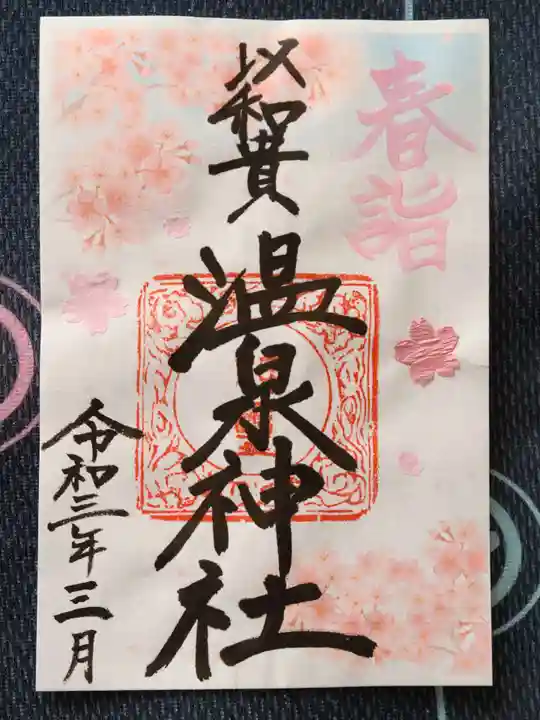 春詣
以和貴
温泉神社
令和三年三月